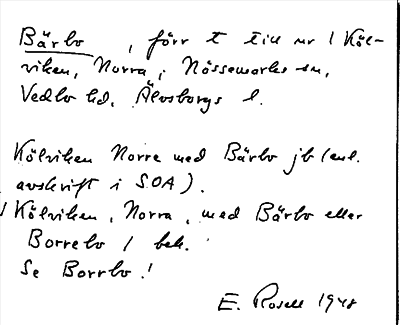 Bärbo, förr t till nr 1 Köl-
viken, Norra, i Nössemarks sn,
Vedbo hd, Älvsborgs l.
Kölviken Norra med Bärbo jb (enl.
avskrift i SOA).
Kölviken, Norra, med Bärbo eller
Borrebo / beh.
Se Borrbo!
E. Rosell 1948